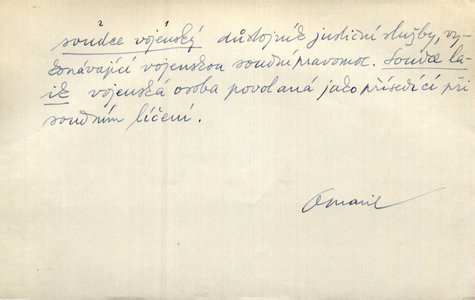 soudce vojenský důstojník justiční služby, vy-
konávající vojenskou soudní pravomoc. Soudce la-
ik vojenská osoba povolaná jako přísedící při
soudním líčení.